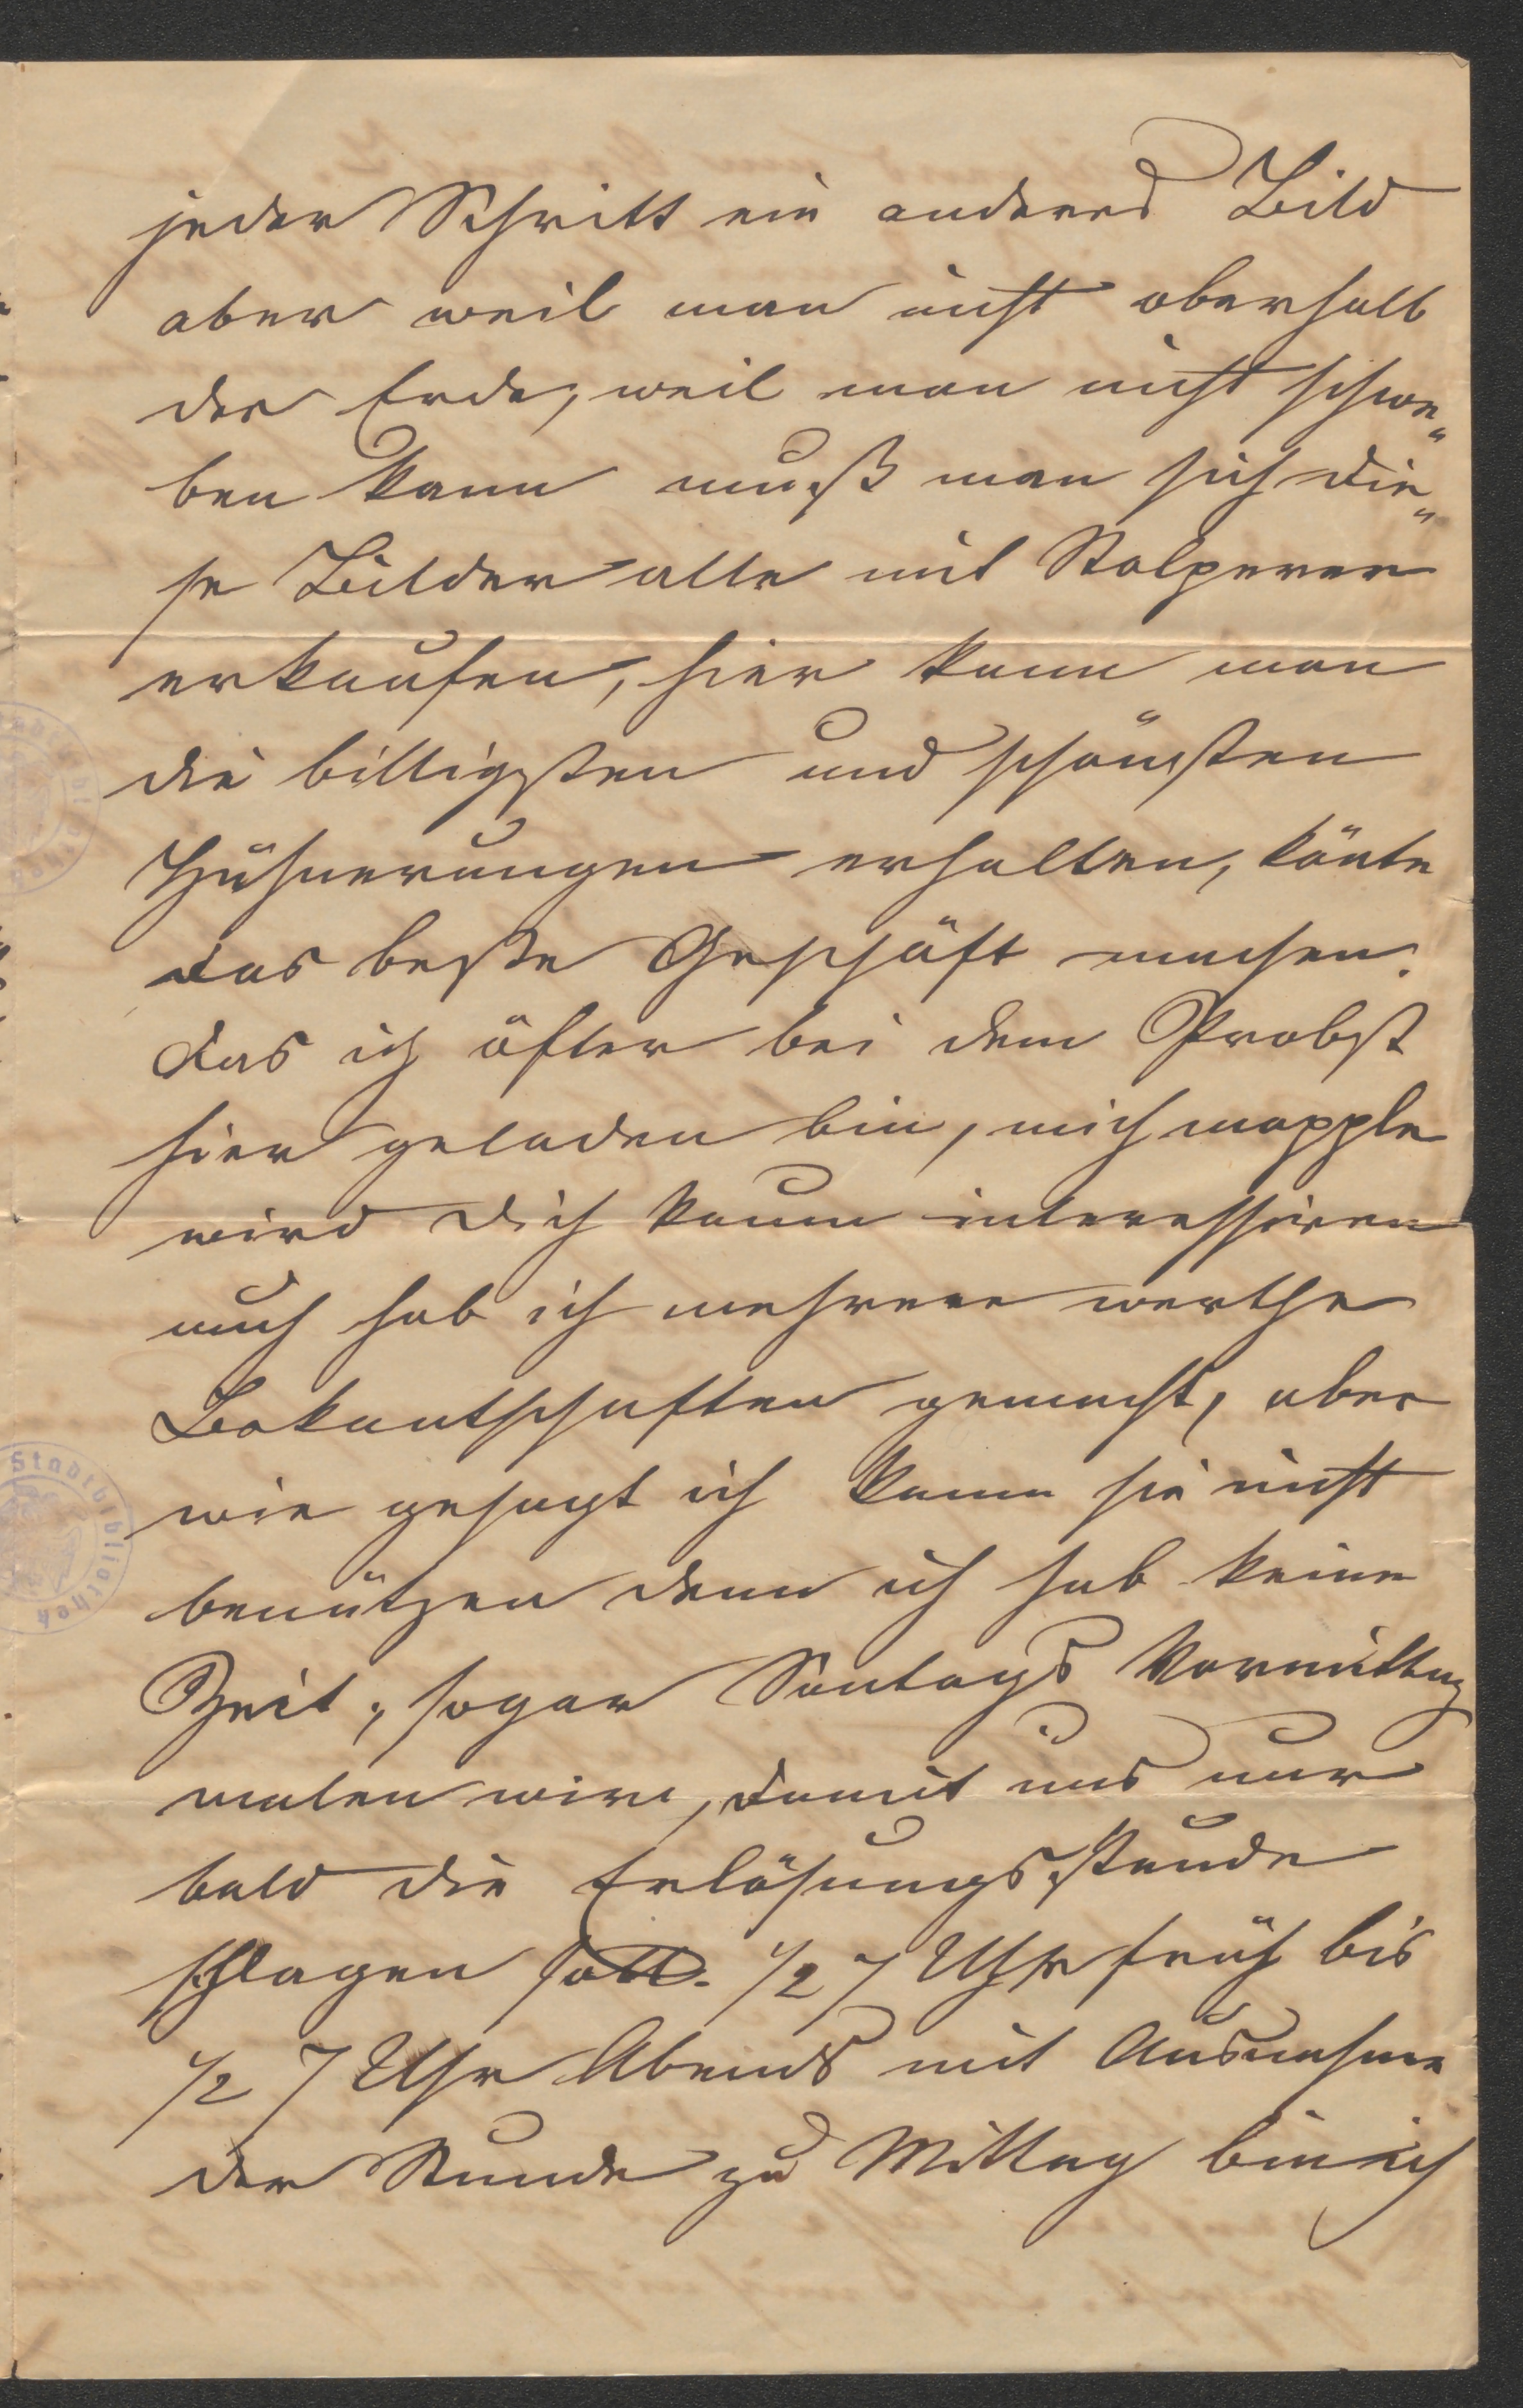 jeder Schritt ein anderes Bild
aber weil man nicht oberhalb
der Erde, weil man nicht schwe„
ben kann muß man sich die„
se Bilder alle mit Stolperer
erkaufen, hier kann man
die billigsten und schönsten
Hühneraugen erhalten, könte
das beste Geschäft machen.
das ich öfter bei dem Probst
hier geladen bin, mich
wird dich kaum interessiren
auch hab ich mehrere werthe
Bekantschaften gemacht, aber
wie gesagt ich kann sie nicht
benützen denn ich hab keine
Zeit, sogar Sontags Vormittag
malen wir, damit uns nur
bald die Erlösungsstunde
schlagen soll. 1/2 7 Uhr früh bis
1/2 7 Uhr Abends mit Ausnahme
der Stunde zu Mittag bin ich
Stadtbibliothek